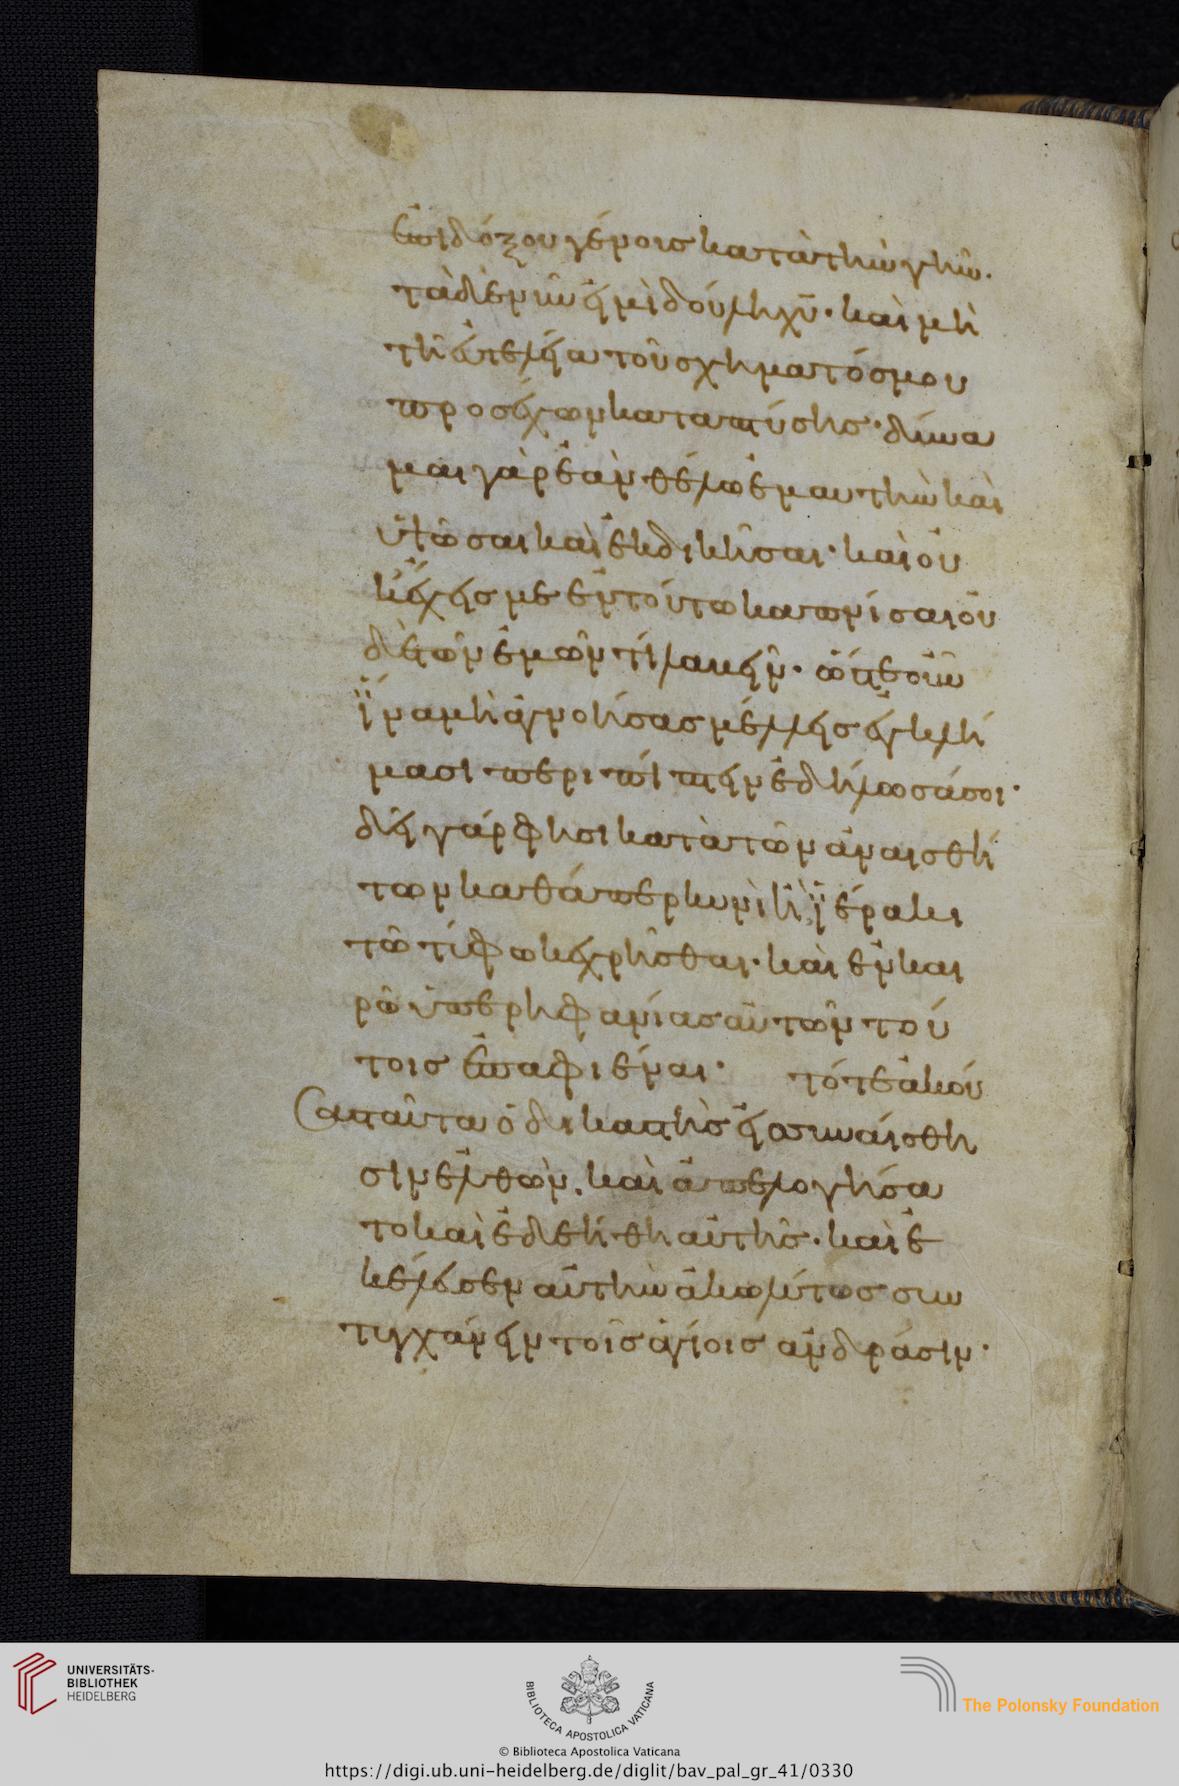 ἐπιδόξου γένους κατὰ τὴν γῆν·
τὰ δὲ νῦν εἰμὶ δούλη χῦ· καὶ μὴ
τῇ εὐτελεία τοῦ σχήματός μου
προσέχων καταπτύσης· δύνα
μαι γὰρ ἐὰν θέλω ἐμαυτὴν καὶ
καὶ ἐκδικῆσαι· καὶ οὐ
κ ἔχεις με ἐν τούτω καπνίσαι οὐ
δὲ τῶν ἐμῶν τί λαβεῖν·
ἵνα μὴ ἀγνοήσας μέλλης ἐγκλή
μασι περιπίπτειν ἐδήλωσά σοι·
δεῖ γάρ φησι κατὰ τῶν ἀναισθή
των καθάπερ κυνὶ ἢ ἱέρακι
τῶ τύφω κεχρῆσθαι· καὶ ἐν και
ρῶ ὑπερηφανίας αὐτῶν τού
τοις ἐπαφιέναι· τότε ἀκού
σας ταῦτα ὁ δικαστὴς εἰς συναίσθη
σιν ἐλθών, καὶ ἀπελογήσα
το καὶ ἐδεήθη αὐτῆς· καὶ ἐ
κέλευσεν αὐτὴν ἀκωλύτως συν
τυγχάνειν τοῖς ἁγίοις ἀνδράσιν·
UNIVERSITÄTS-
BIBLIOTHEK
HEIDELBERG
BIBLIOTECA APOSTOLICA VATICANA
The Polonsky Foundation
© Biblioteca Apostolica Vaticana
https://digi.ub.uni-heidelberg.de/diglit/bav_pal_gr_41/0330